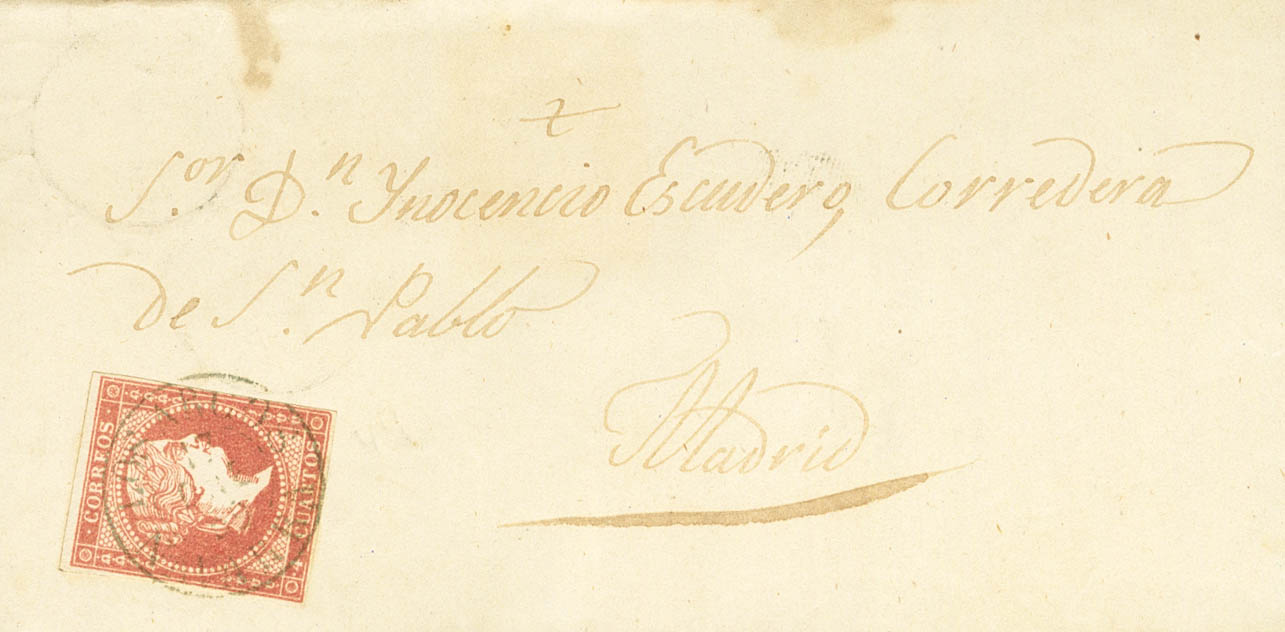 S.or D.n Ynocencio Escudero, Corredera
de S.n Pablo
Madrid
CORREOS
4 CUARTOS